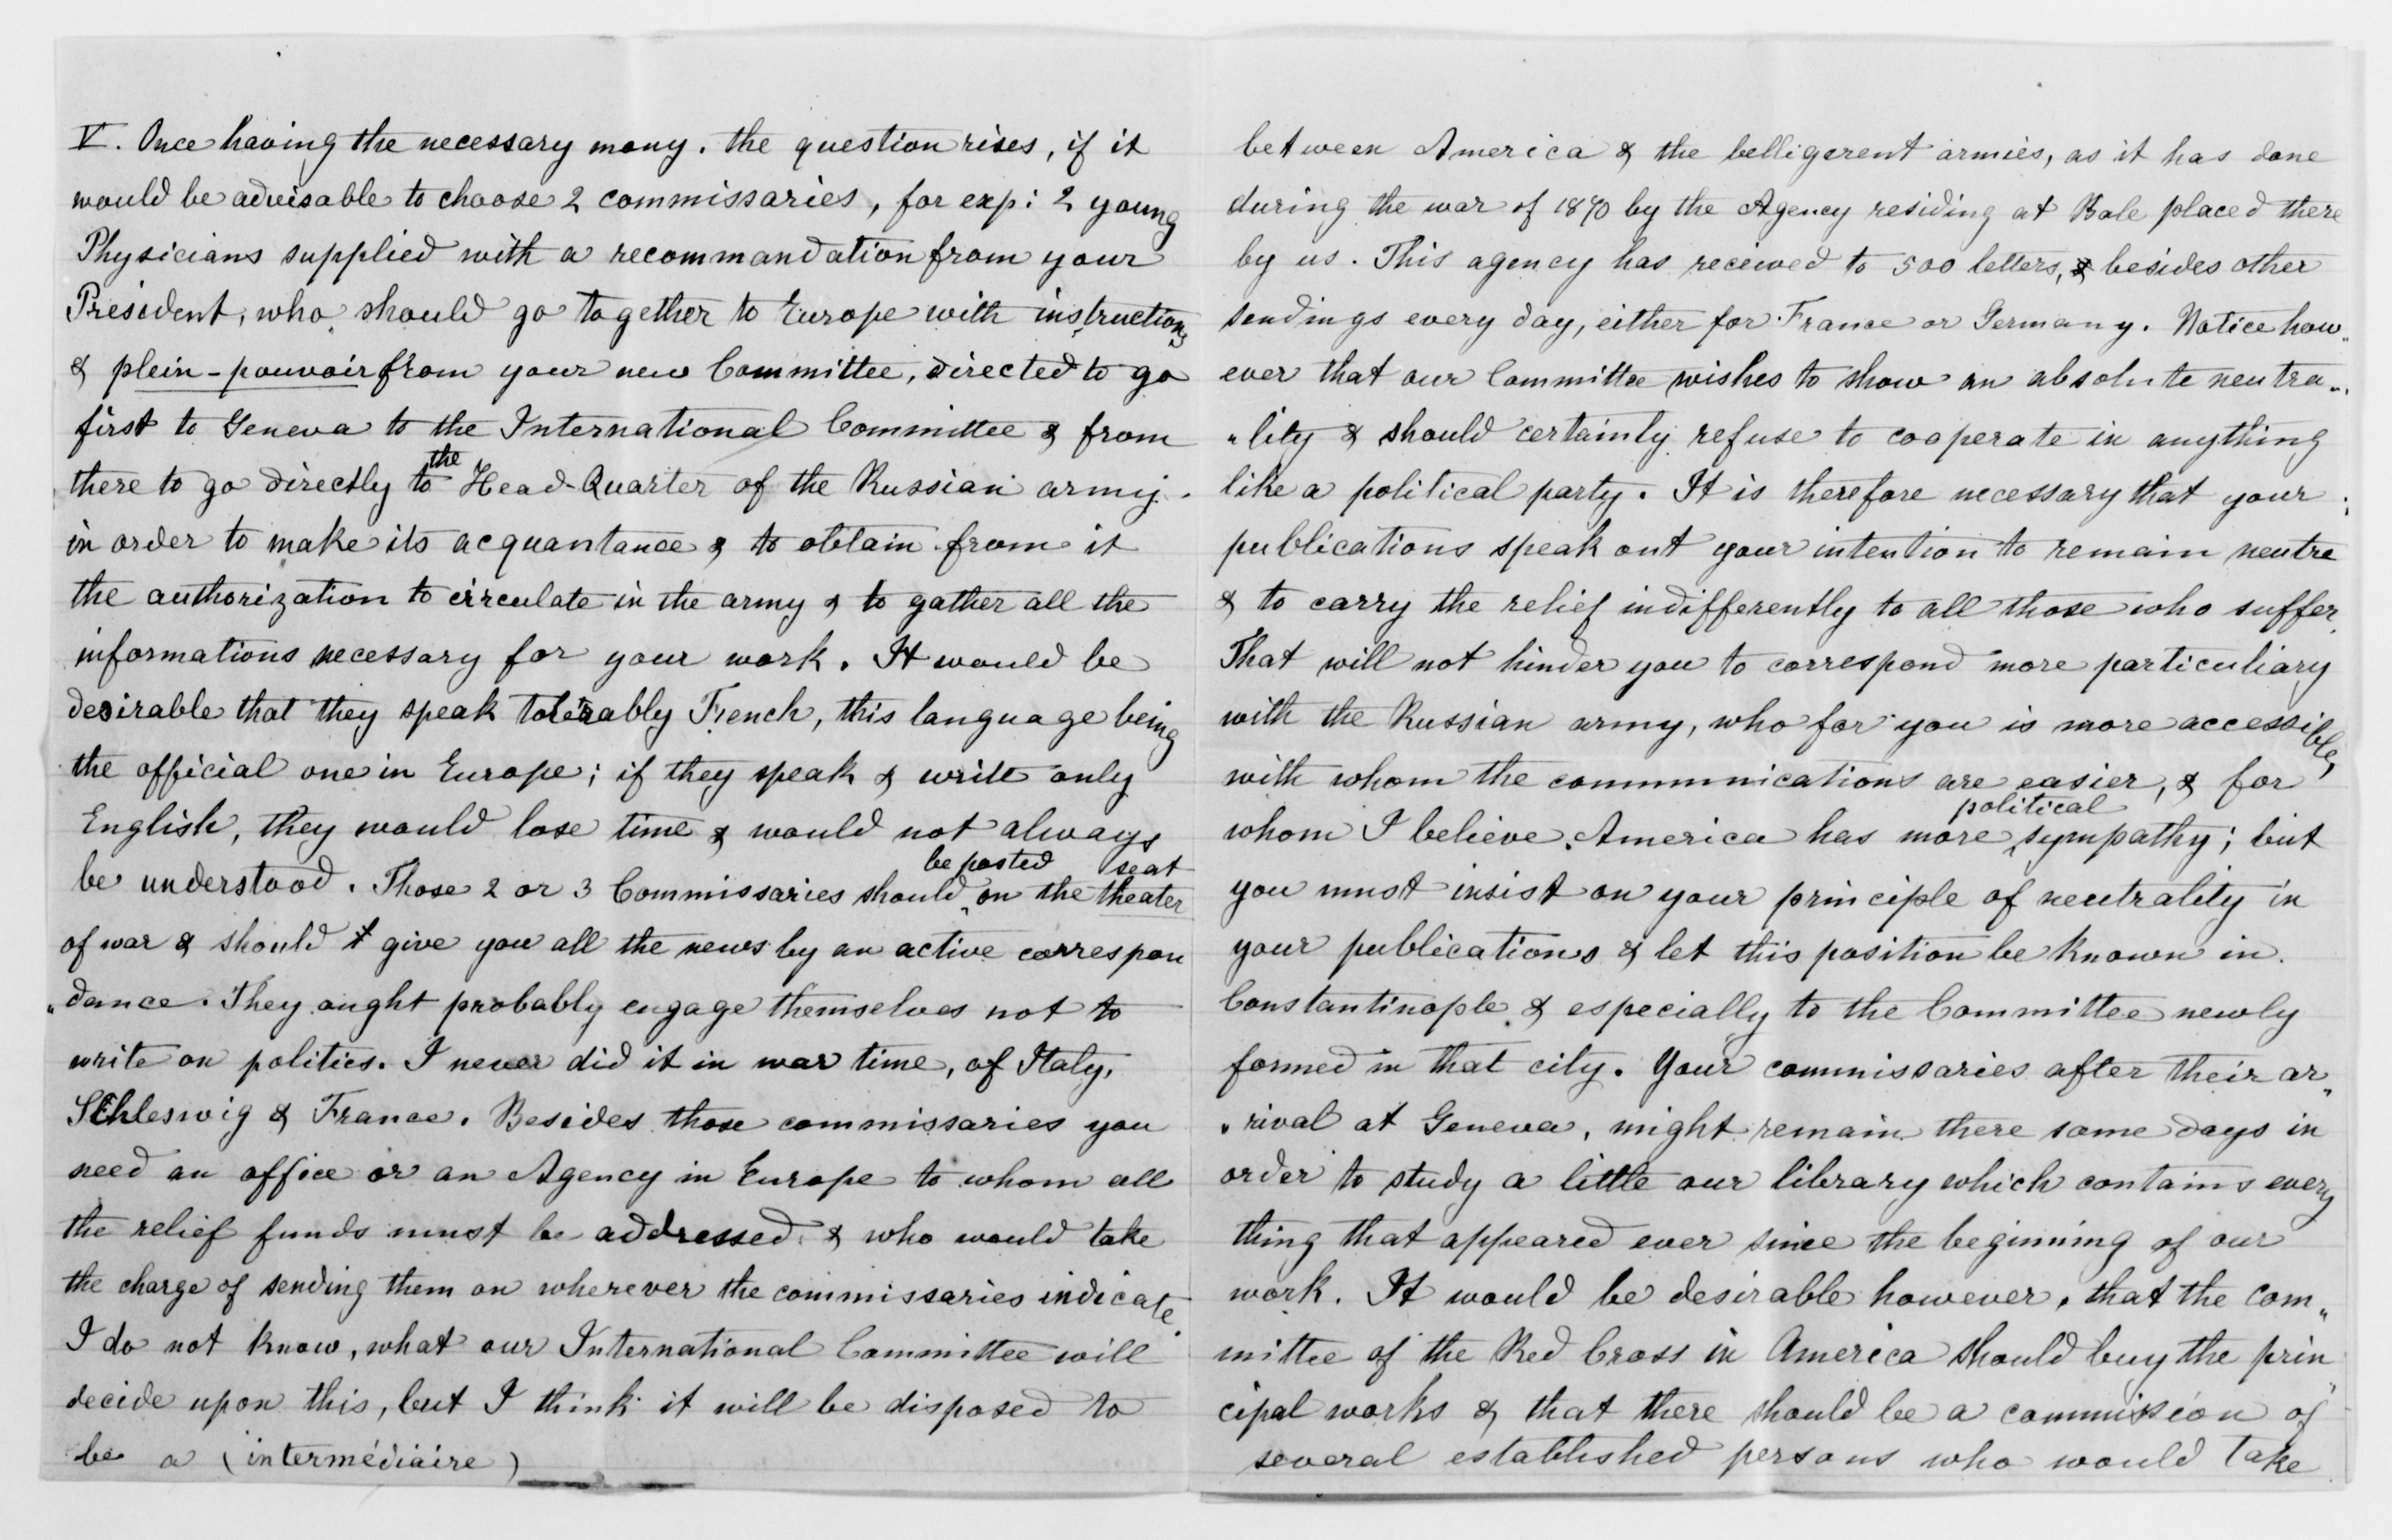 V. Once having the necessary mony. the question rises, if it
would be advisable to choose 2 commissaries, for exp: 2 young
Physicians supplied with a recommandation from your
President, who should go together to Europe with instructions
& plein-pouvoir from your new Committee, directed to go
first to Geneva to the International Committee & from
there to go directly to the Head-Quarter of the Russian army.
in order to make its acquantance & to obtain from it
the authorization to circulate in the army & to gather all the
informations necessary for your work. It would be
desirable that they speak tolerably French, this language being
the official one in Europe; if they speak & write only
English, they would lose time & would not always
be understood. Those 2 or 3 Commissaries should be posted on the seat theater
of war & should give you all the news by an active correspon
"dance. They ought probably engage themselves not to
write on politics. I never did it in war time, of Italy,
Schleswig & France. Besides those commissaries you
need an office or an Agency in Europe to whom all
the relief funds must be addressed & who would take
the charge of sending them on wherever the commissaries indicate.
I do not know, what our International Committee will
decide upon this, but I think it will be disposed to
be a (intermédiaire)
between America & the belligerent armies, as it has done
during the war of 1870 by the Agency residing at Bale placed there
by us. This agency has received to 500 letters, & besides other
sendings every day, either for France or Germany. Notice how„
ever that our Committee wishes to show an absolute neutra„
"lity & should certainly refuse to cooperate in anything
like a political party. It is therefore necessary that your
publications speak out your intention to remain neutre
& to carry the relief indifferently to all those who suffer.
That will not hinder you to correspond more particuliary
with the Russian army, who for you is more accessible,
with whom the communications are easier, & for
whom I believe America has more political sympathy; but
you must insist on your principle of neutrality in
your publications & let this position be known in
Constantinople & especially to the Committee newly
formed in that city. Your commissaries after their ar„
"rival at Geneva, might remain there some days in
order to study a little our library which contains every
thing that appeared ever since the beginning of our
work. It would be desirable however, that the com„
mittee of the Red Cross in America should buy the prin„
cipal works & that there should be a commission of
several established persons who would take